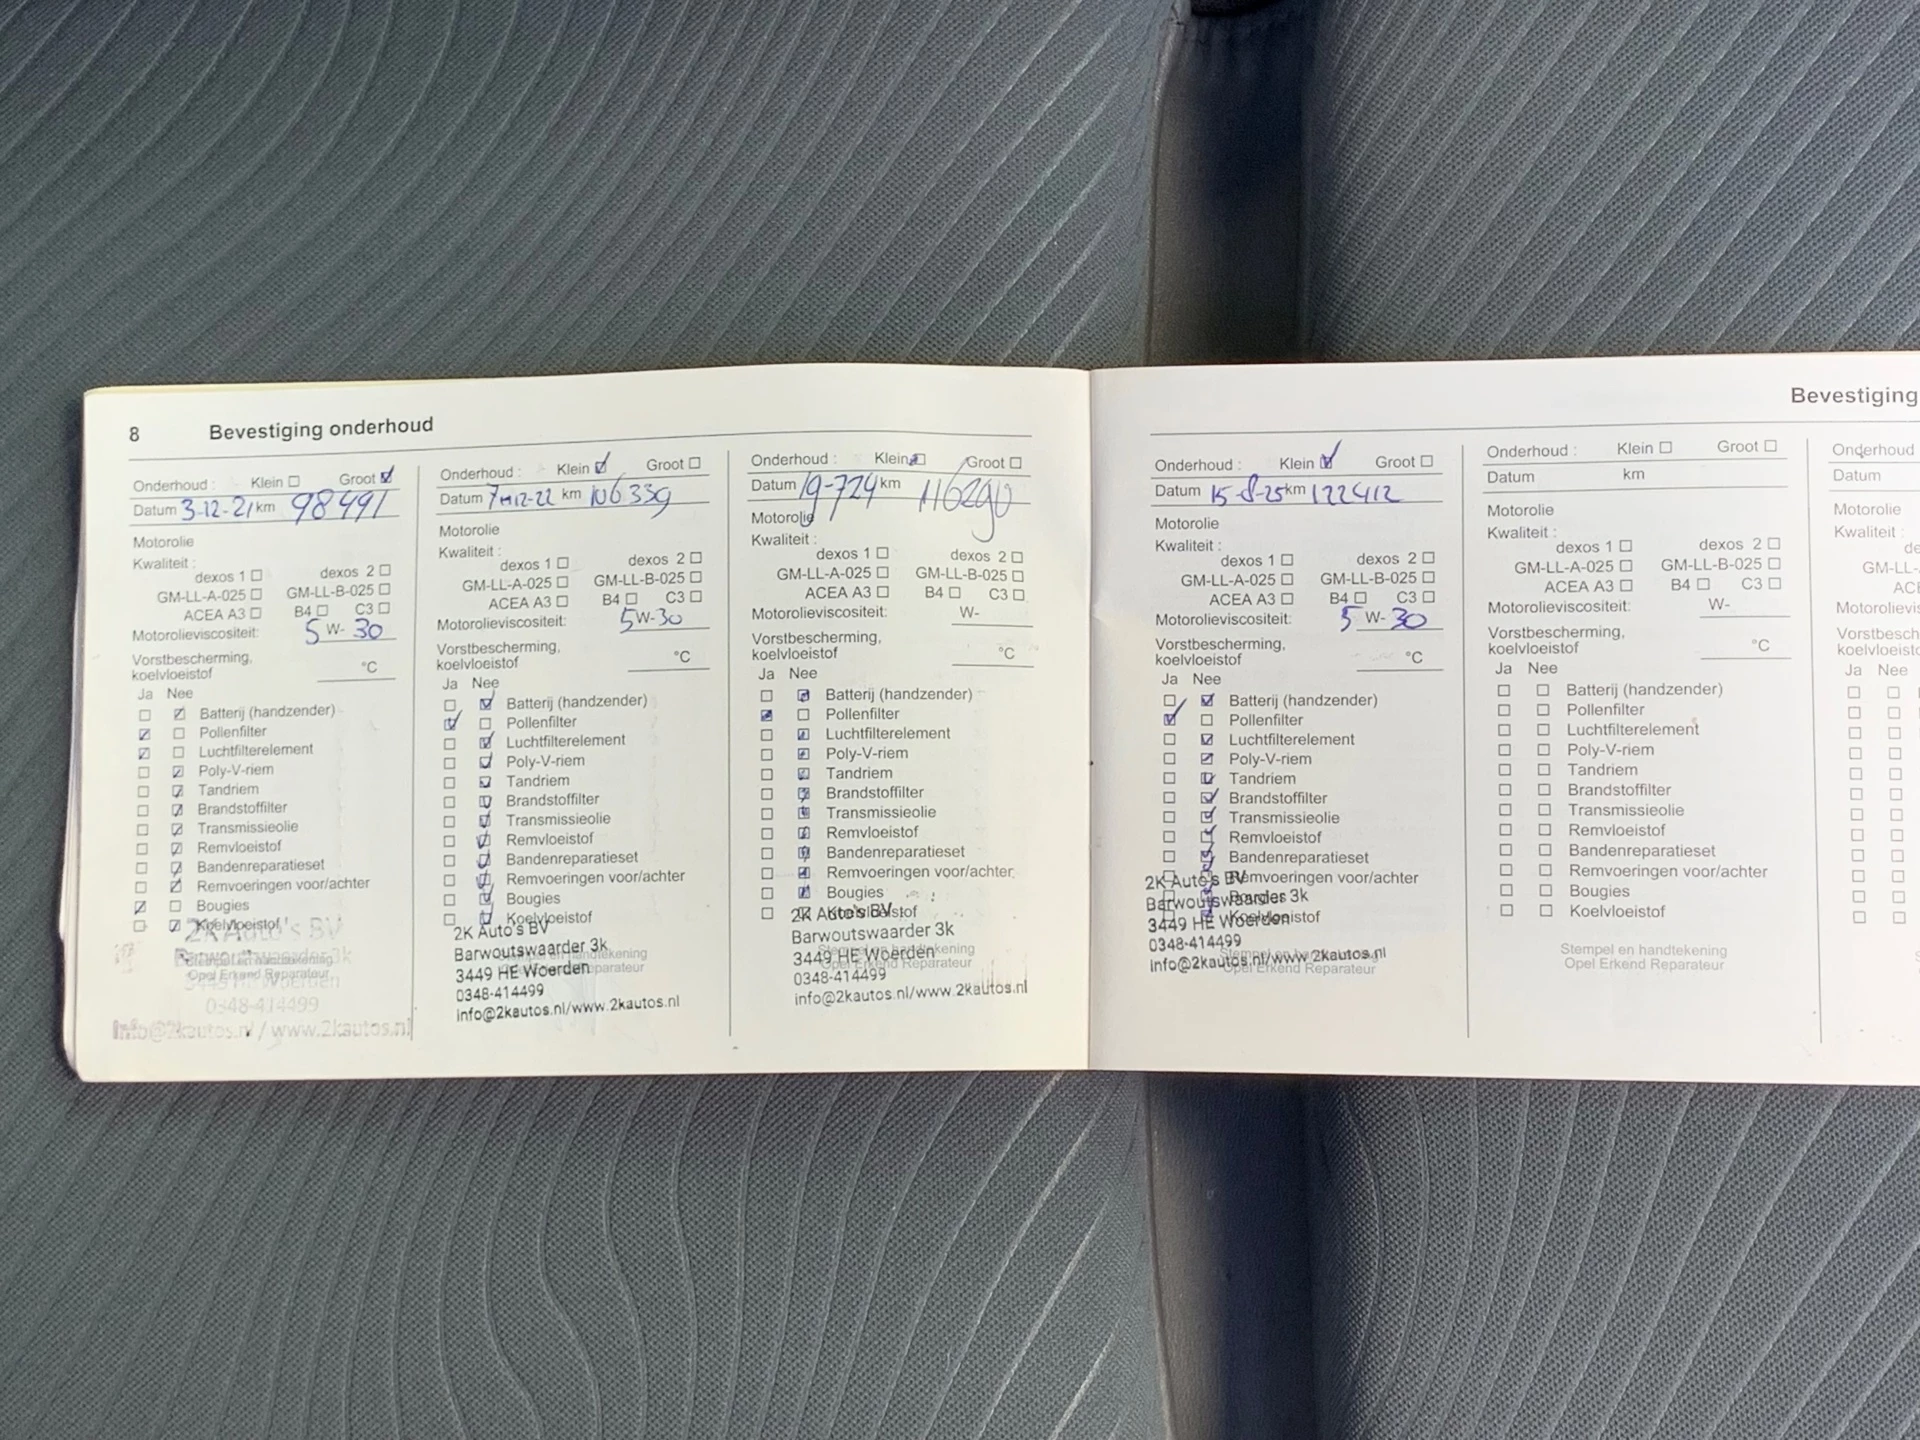 8 Bevestiging onderhoud
Onderhoud : Klein ☐ Groot ☑
Datum 3-12-21 km 98491
Motorolie
Kwaliteit :
dexos 1 ☐ dexos 2 ☐
GM-LL-A-025 ☐ GM-LL-B-025 ☐
ACEA A3 ☐ B4 ☐ C3 ☐
Motorolieviscositeit: 5 W- 30
Vorstbescherming,
koelvloeistof °C
Ja Nee
☐ ☑ Batterij (handzender)
☑ ☐ Pollenfilter
☑ ☐ Luchtfilterelement
☐ ☑ Poly-V-riem
☐ ☑ Tandriem
☐ ☑ Brandstoffilter
☐ ☑ Transmissieolie
☐ ☑ Remvloeistof
☐ ☑ Bandenreparatieset
☐ ☑ Remvoeringen voor/achter
☑ ☐ Bougies
☐ ☑ Koelvloeistof
2K Auto's BV
Barwoutswaarder 3k
Stempel en handtekening
Opel Erkend Reparateur
3449 HE Woerden
0348-414499
info@2kautos.nl / www.2kautos.nl
Onderhoud : Klein ☑ Groot ☐
Datum 7-12-22 km 106339
Motorolie
Kwaliteit :
dexos 1 ☐ dexos 2 ☐
GM-LL-A-025 ☐ GM-LL-B-025 ☐
ACEA A3 ☐ B4 ☐ C3 ☐
Motorolieviscositeit: 5 W- 30
Vorstbescherming,
koelvloeistof °C
Ja Nee
☐ ☑ Batterij (handzender)
☑ ☐ Pollenfilter
☐ ☑ Luchtfilterelement
☐ ☑ Poly-V-riem
☐ ☑ Tandriem
☐ ☑ Brandstoffilter
☐ ☑ Transmissieolie
☐ ☑ Remvloeistof
☐ ☑ Bandenreparatieset
☐ ☑ Remvoeringen voor/achter
☐ ☑ Bougies
☐ ☑ Koelvloeistof
2K Auto's BV
Barwoutswaarder 3k
Stempel en handtekening
3449 HE Woerden
Opel Erkend Reparateur
0348-414499
info@2kautos.nl/www.2kautos.nl
Onderhoud : Klein ☑ Groot ☐
Datum 19-724 km 116290
Motorolie
Kwaliteit :
dexos 1 ☐ dexos 2 ☐
GM-LL-A-025 ☐ GM-LL-B-025 ☐
ACEA A3 ☐ B4 ☐ C3 ☐
Motorolieviscositeit: W-
Vorstbescherming,
koelvloeistof °C
Ja Nee
☐ ☑ Batterij (handzender)
☑ ☐ Pollenfilter
☐ ☑ Luchtfilterelement
☐ ☑ Poly-V-riem
☐ ☑ Tandriem
☐ ☑ Brandstoffilter
☐ ☑ Transmissieolie
☐ ☑ Remvloeistof
☐ ☑ Bandenreparatieset
☐ ☑ Remvoeringen voor/achter
☐ ☑ Bougies
☐ ☑ Koelvloeistof
2K Auto's BV
Barwoutswaarder 3k
Stempel en handtekening
3449 HE Woerden
Opel Erkend Reparateur
0348-414499
info@2kautos.nl/www.2kautos.nl
Bevestiging
Onderhoud : Klein ☑ Groot ☐
Datum 15-8-25 km 122412
Motorolie
Kwaliteit :
dexos 1 ☐ dexos 2 ☐
GM-LL-A-025 ☐ GM-LL-B-025 ☐
ACEA A3 ☐ B4 ☐ C3 ☐
Motorolieviscositeit: 5 W- 30
Vorstbescherming,
koelvloeistof °C
Ja Nee
☐ ☑ Batterij (handzender)
☑ ☐ Pollenfilter
☐ ☑ Luchtfilterelement
☐ ☑ Poly-V-riem
☐ ☑ Tandriem
☐ ☑ Brandstoffilter
☐ ☑ Transmissieolie
☐ ☑ Remvloeistof
☐ ☑ Bandenreparatieset
☐ ☑ Remvoeringen voor/achter
☐ ☑ Bougies
☐ ☑ Koelvloeistof
2K Auto's BV
Barwoutswaarder 3k
3449 HE Woerden
0348-414499
Stempel en handtekening
info@2kautos.nl/www.2kautos.nl
Opel Erkend Reparateur
Onderhoud : Klein ☐ Groot ☐
Datum km
Motorolie
Kwaliteit :
dexos 1 ☐ dexos 2 ☐
GM-LL-A-025 ☐ GM-LL-B-025 ☐
ACEA A3 ☐ B4 ☐ C3 ☐
Motorolieviscositeit: W-
Vorstbescherming,
koelvloeistof °C
Ja Nee
☐ ☐ Batterij (handzender)
☐ ☐ Pollenfilter
☐ ☐ Luchtfilterelement
☐ ☐ Poly-V-riem
☐ ☐ Tandriem
☐ ☐ Brandstoffilter
☐ ☐ Transmissieolie
☐ ☐ Remvloeistof
☐ ☐ Bandenreparatieset
☐ ☐ Remvoeringen voor/achter
☐ ☐ Bougies
☐ ☐ Koelvloeistof
Stempel en handtekening
Opel Erkend Reparateur
Onderhoud
Datum
Motorolie
Kwaliteit :
de
GM-LL-
ACE
Motorolievis
Vorstbesch
koelvloeisto
Ja Nee